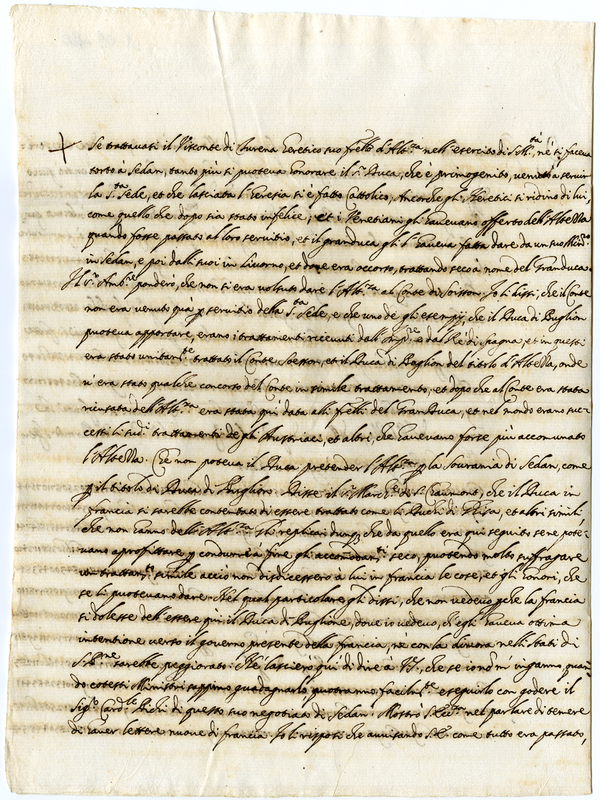 Se trattavasi il Visconte di Turena Eretico suo frello d'Alt.za nell'esercito di S.M.tà, né si faceva
torto à Sedan, tanto più si poteva honorare il s.r Duca, che è primogenito, venuto à servir
la S.ta Sede, et che lasciata l'Eresia si è fatto Cattolico, Ancorche gli Heretici si ridino di lui,
come quello che dopo sia stato infelice, et i Venetiani gli havevano offerto dell'Altezza
quando fosse passato al loro servitio, et il granduca gli l'haveva fatta dare da un suo
in Sedan, e poi dalli suoi in Livorno, et dove era occorso, trattando seco à nome del Granduca.
Il s.r Amb.re ponderò, che non si era voluto dare l'Alt.za al Conte di Soisson. Io li dissi, che il Conte
non era venuto quà p servitio della S.ta Sede, e che uno de gli esempij, che il Duca di Buglion
poteva apportare, erano i trattamenti ricevuti dall'Imp.re e dal Rè di Spagna, et in questi
era stato unitam.te trattato il Conte Soesson, et il Duca di Buglion del titolo d'Altezza, onde
v'era stato qualche concorso del Conte in simile trattamento, et dopo che al Conte era stata
ricusata dell'Alt.za era stata qui data alli frelli del GranDuca, et nel mondo erano suc-
cessi li sud.i trattamenti de gli Austriaci, et altri, che havevano forse più accommunato
l'Altezza. Che non poteva il Duca pretender l'Alt.za p la sovrania di Sedan, come
p il titolo di Duca di Buglion. Disse il s.r March.e di s. Chaumont, che il Duca in
francia si sarebbe contentato di essere trattato come li Duchi di Guisa, et altri simili
che non hanno dell'Alt.za Gli replicai dunq, che da quello era qui seguito se ne pote-
vano aprofittare p condurre à fine gli accomodam.ti seco, potendo molto suffragare
un trattam.to simile acciò non disdicessero à lui in francia le cose, et gli honori, che
se li potevano dare. Nel qual particolare gli dissi, che non vedevo pche la francia
si dolesse dell'essere qui il Duca di Buglione, dove io vedevo, ch'egli haveva ottima
intentione verso il governo presente della francia, ne con la dimora nelli Stati di
S. sarebbe peggiorato. Nè lascierò qui di dire à V.S., che se io non m'inganno, quan-
do cotesti Ministri sappino guadagnarlo potranno facilm.te eseguirlo con godere il
Sig.r Card.le Bichi di questo suo negotiato di Sedan. Mostrò nel parlare di tenere
di haver lettere nuove di francia. Io li risposi che avvisando come tutto era passato,